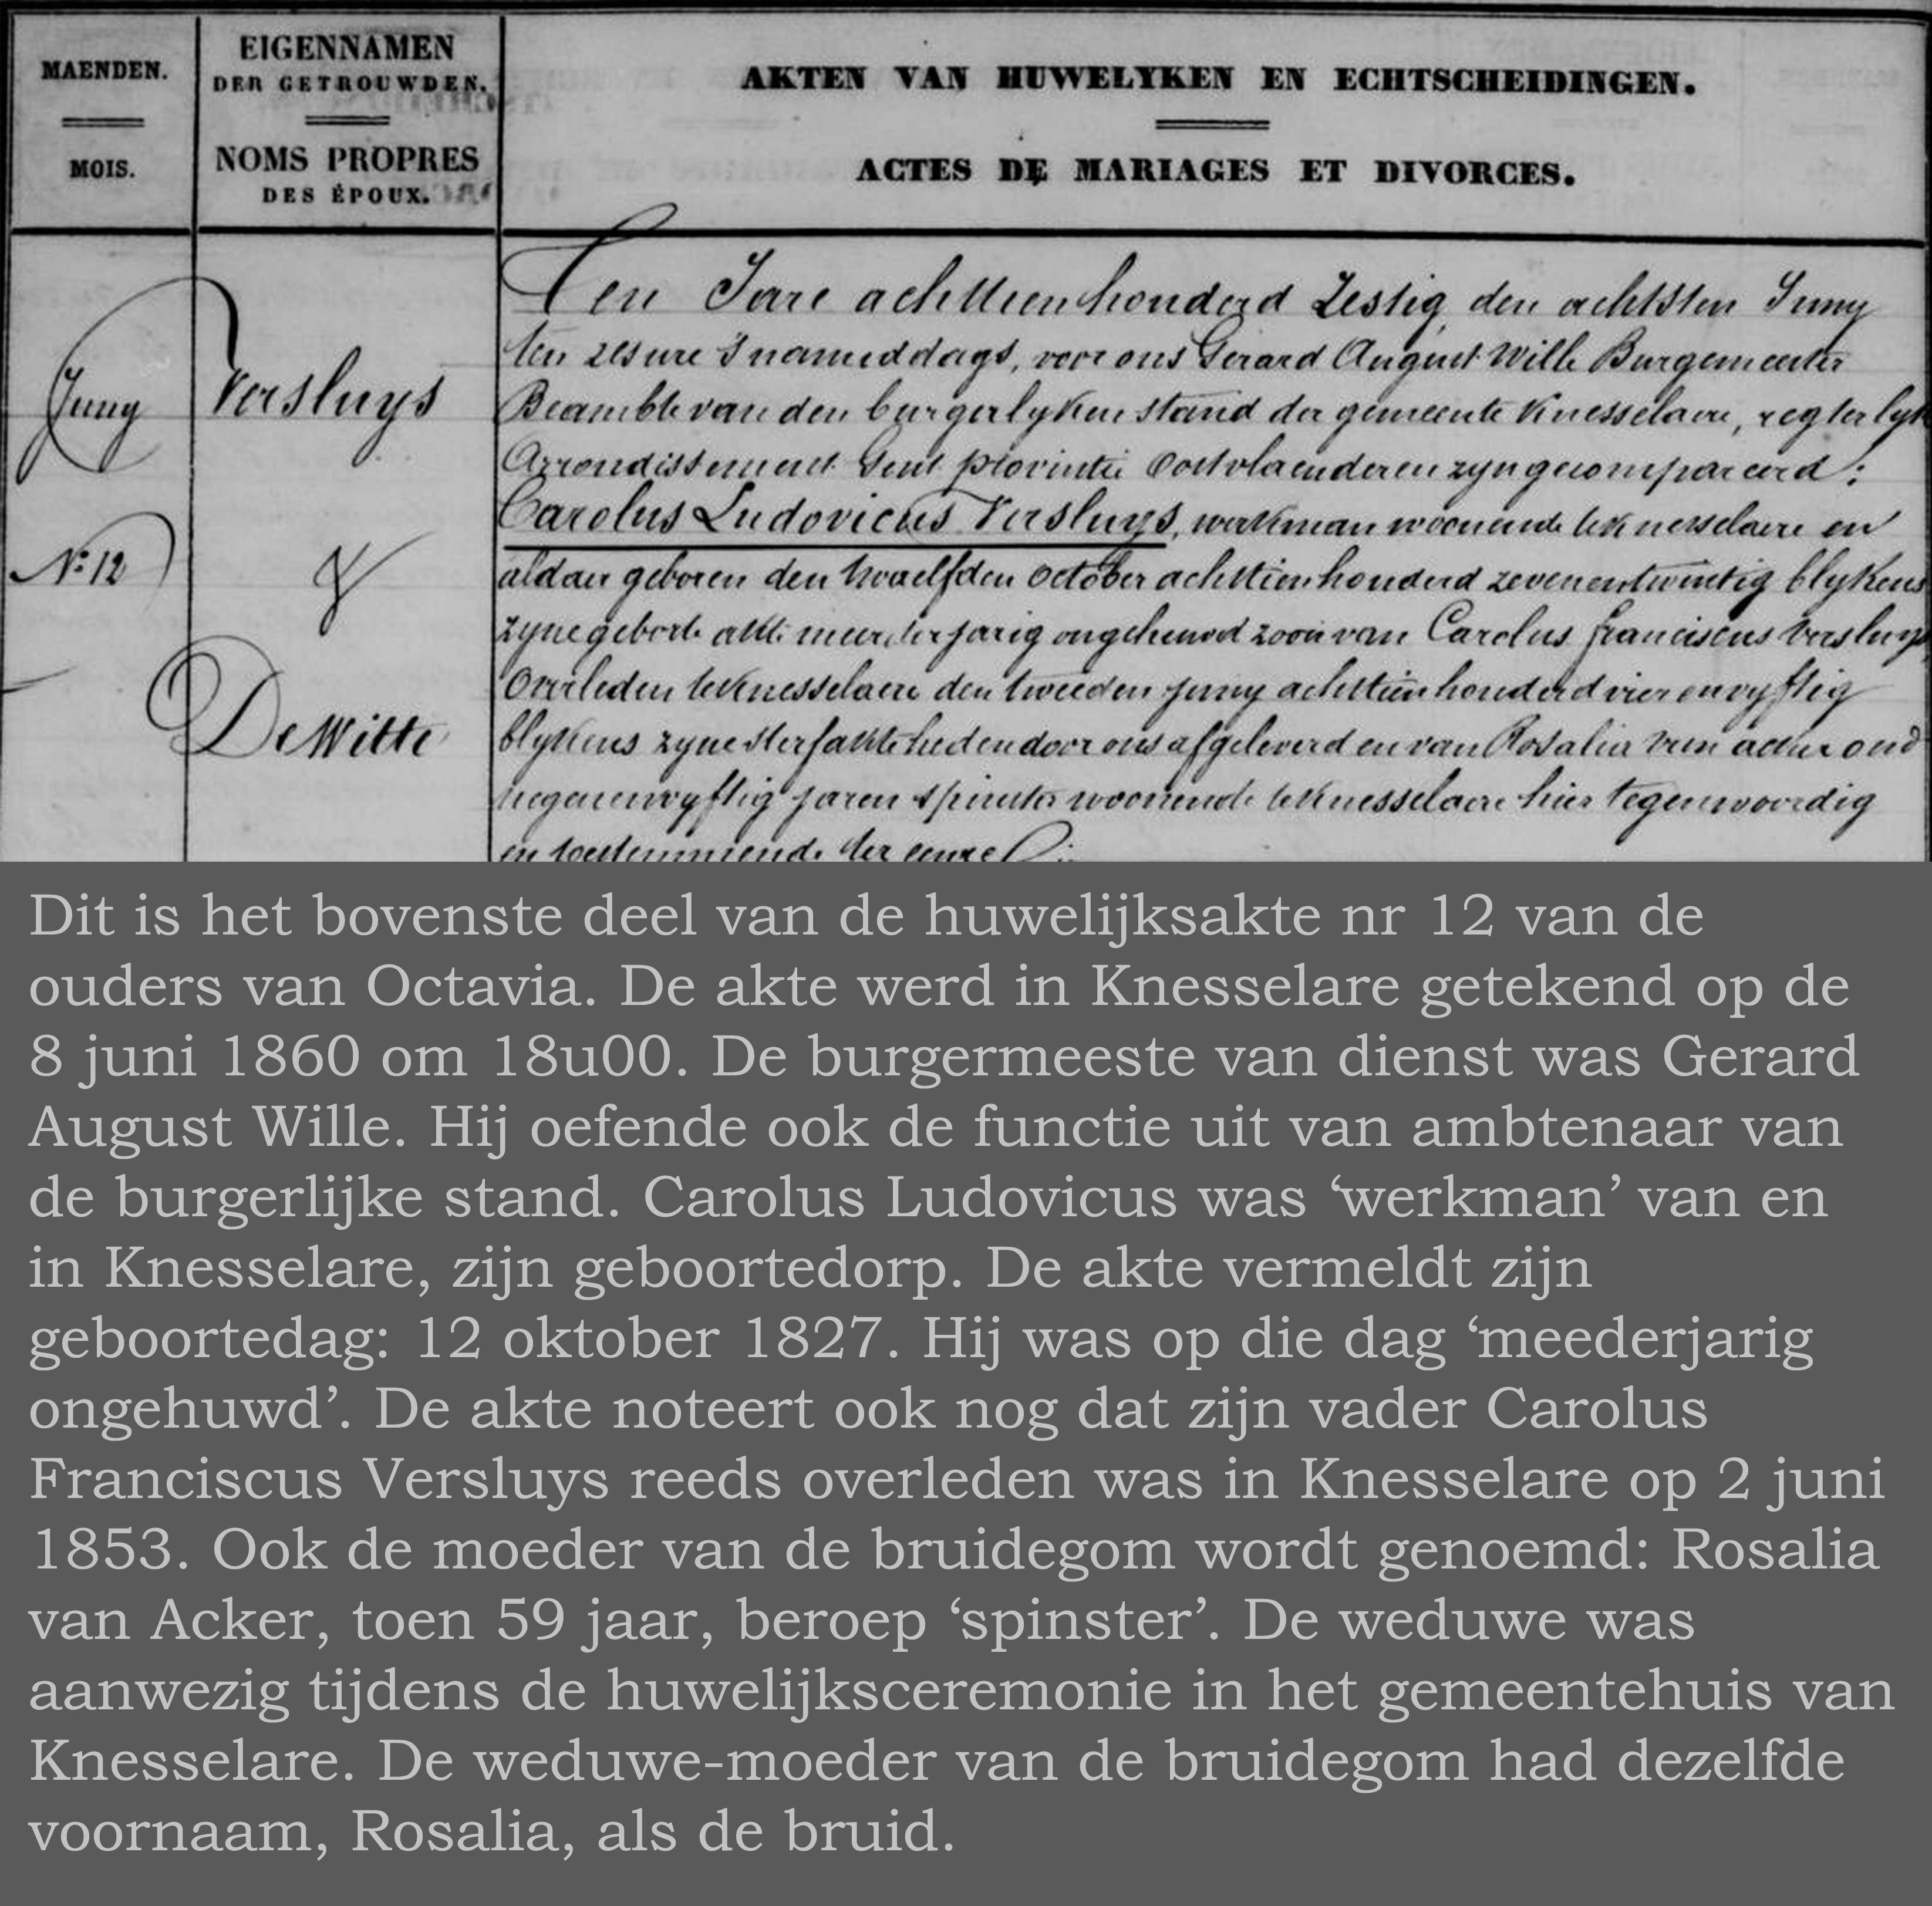 MAENDEN.
MOIS.
EIGENNAMEN
DER GETROUWDEN.
NOMS PROPRES
DES ÉPOUX.
AKTEN VAN HUWELYKEN EN ECHTSCHEIDINGEN.
ACTES DE MARIAGES ET DIVORCES.
Juny
N° 12
Versluys
&
De Witte
Ten Jare achttien honderd Zestig den achtsten Juny
ten zes ure 's namiddags, voor ons Gerard August Wille Burgemeester
Beambte van den burgerlyken stand der gemeente Knesselaere, regterlyk
Arrondissement Gent provintie Oostvlaenderen zyn gecompareerd:
Carolus Ludovicus Versluys, werkman woonende te Knesselaere en
aldaer geboren den twaelfden October achttien honderd zevenentwintig blykens
zyne geborte akte meerderjarig ongehuwd zoon van Carolus franciscus Versluys
Overleden te Knesselaere den tweeden juny achttien honderd vier en vyftig
blykens zyne sterfakte heden door ons afgeleverd en van Rosalia van acker oud
negenenvyftig jaren spinster woonende te Knesselaere hier tegenwoordig
en toestemmende ter eenre
Dit is het bovenste deel van de huwelijksakte nr 12 van de
ouders van Octavia. De akte werd in Knesselare getekend op de
8 juni 1860 om 18u00. De burgermeeste van dienst was Gerard
August Wille. Hij oefende ook de functie uit van ambtenaar van
de burgerlijke stand. Carolus Ludovicus was ‘werkman’ van en
in Knesselare, zijn geboortedorp. De akte vermeldt zijn
geboortedag: 12 oktober 1827. Hij was op die dag ‘meederjarig
ongehuwd’. De akte noteert ook nog dat zijn vader Carolus
Franciscus Versluys reeds overleden was in Knesselare op 2 juni
1853. Ook de moeder van de bruidegom wordt genoemd: Rosalia
van Acker, toen 59 jaar, beroep ‘spinster’. De weduwe was
aanwezig tijdens de huwelijksceremonie in het gemeentehuis van
Knesselare. De weduwe-moeder van de bruidegom had dezelfde
voornaam, Rosalia, als de bruid.